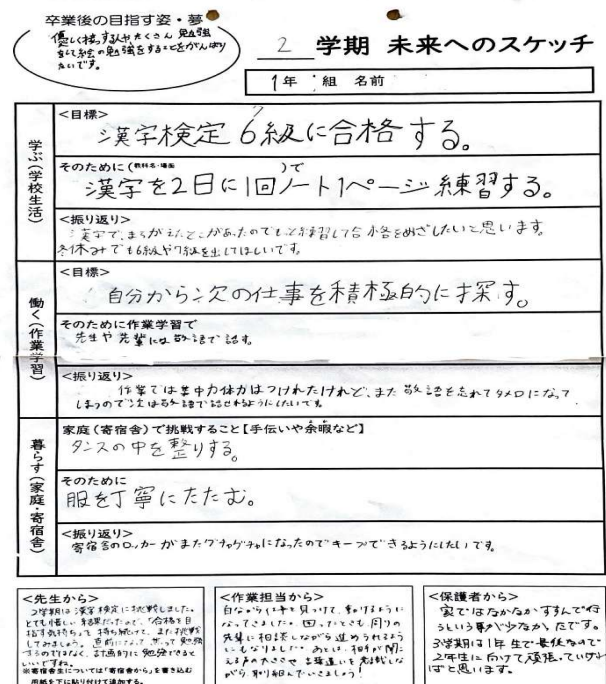 卒業後の目指す姿・夢
優しく接する人やたくさん勉強
をして絵の勉強をすることをがんばり
たいです。
2 学期 未来へのスケッチ
1年 組 名前
学ぶ(学校生活)
<目標>
漢字検定 6級に合格する。
そのために(教科名・場面 )で
漢字を2日に1回ノート1ページ練習する。
<振り返り>
漢字で、まちがえたとこがあったのでもっと練習して合格をめざしたいと思います。
冬休みでも6級や7級を出してほしいです。
働く(作業学習)
<目標>
自分から次の仕事を積極的に探す。
そのために作業学習で
先生や先輩には敬語で話す。
<振り返り>
作業では集中力体力はつけれたけれど、また敬語を忘れてタメ口になって
しまうので次は敬語で話せれるようにしたいです。
暮らす(家庭・寄宿舎)
家庭(寄宿舎)で挑戦すること【手伝いや余暇など】
タンスの中を整りする。
そのために
服を丁寧にたたむ。
<振り返り>
寄宿舎のロッカーがまたグチャグチャになったのでキープできるようにしたいです。
<先生から>
2学期は漢字検定に挑戦しました。
とても惜しい結果だったので、「合格を目
指す気持ち」を持ち続けて、また挑戦
してみましょう。直前になって焦って勉強
するのではなく、計画的に勉強できると
いいですね。
※寄宿舎生については「寄宿舎から」を書き込む
用紙を下に貼り付けて追加する。
<作業担当から>
自ら仕事を見つけて、動けるように
なってきました。困ったときも、周りの
先輩に相談しながら進められるように
もなりました。あとは、相手が聞こ
える声の大きさや言葉遣いを意識しな
がら取り組んでいきましょう!
<保護者から>
家ではなかなかすすんで行
うという事が少なかったです。
3学期は1年生で最後なので
2年生に向けて頑張っていけれ
ばと思います。